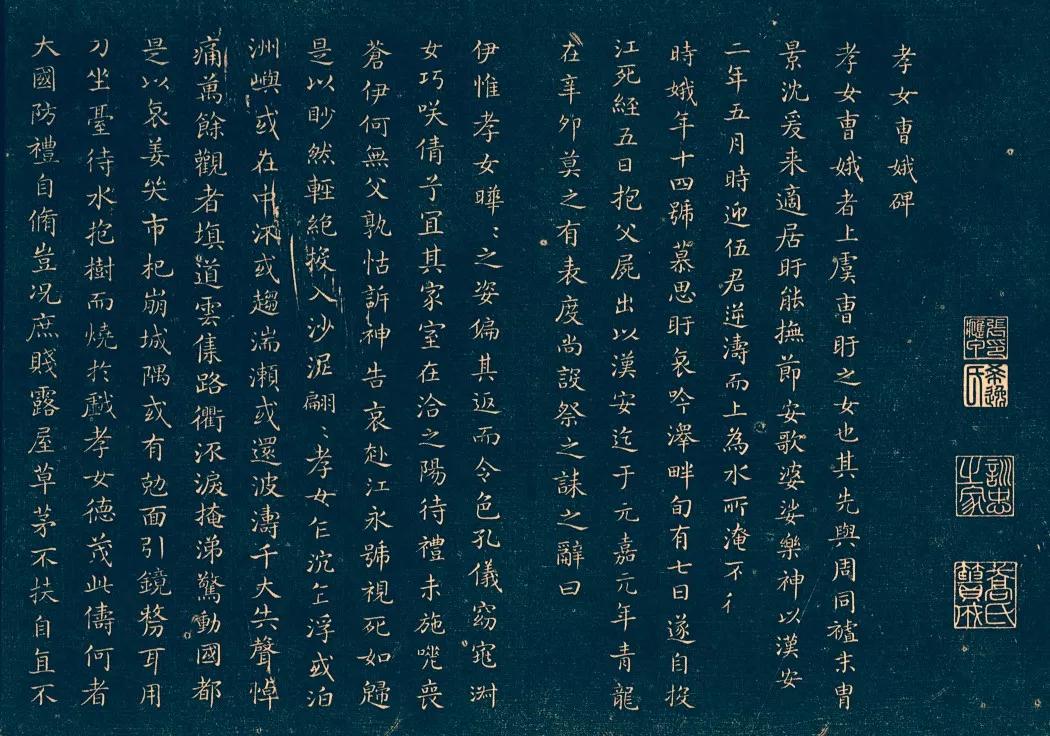 孝女曹娥碑
孝女曹娥者上虞曹盱之女也其先與周同禇末冑
景沈爰来適居盱能撫節安歌婆娑樂神以漢安
二年五月時迎伍君逆濤而上為水所淹不彳
時娥年十四號慕思盱哀吟澤畔旬有七日遂自投
江死經五日抱父屍出以漢安迄于元嘉元年青龍
在辛卯莫之有表度尚設祭之誄之辭曰
伊惟孝女曄〻之姿偏其返而令色孔儀窈窕淑
女巧咲倩兮宜其家室在洽之陽待禮未施嗟喪
蒼伊何無父孰怙訴神告哀赴江永號視死如歸
是以眇然輕絕投入沙泥翩〻孝女乍沉乍浮或泊
洲嶼或在中流或趨湍瀬或還波濤千夫失聲悼
痛萬餘觀者填道雲集路衢泝淚掩涕驚動國都
是以哀姜哭市杞崩城隅或有尅面引鏡剺耳用
刀坐臺待水抱樹而燒於戲孝女德茂此儔何者
大國防禮自脩豈況庶賤露屋草茅不扶自直不
張
希逸
訓忠之家
喬氏簣成